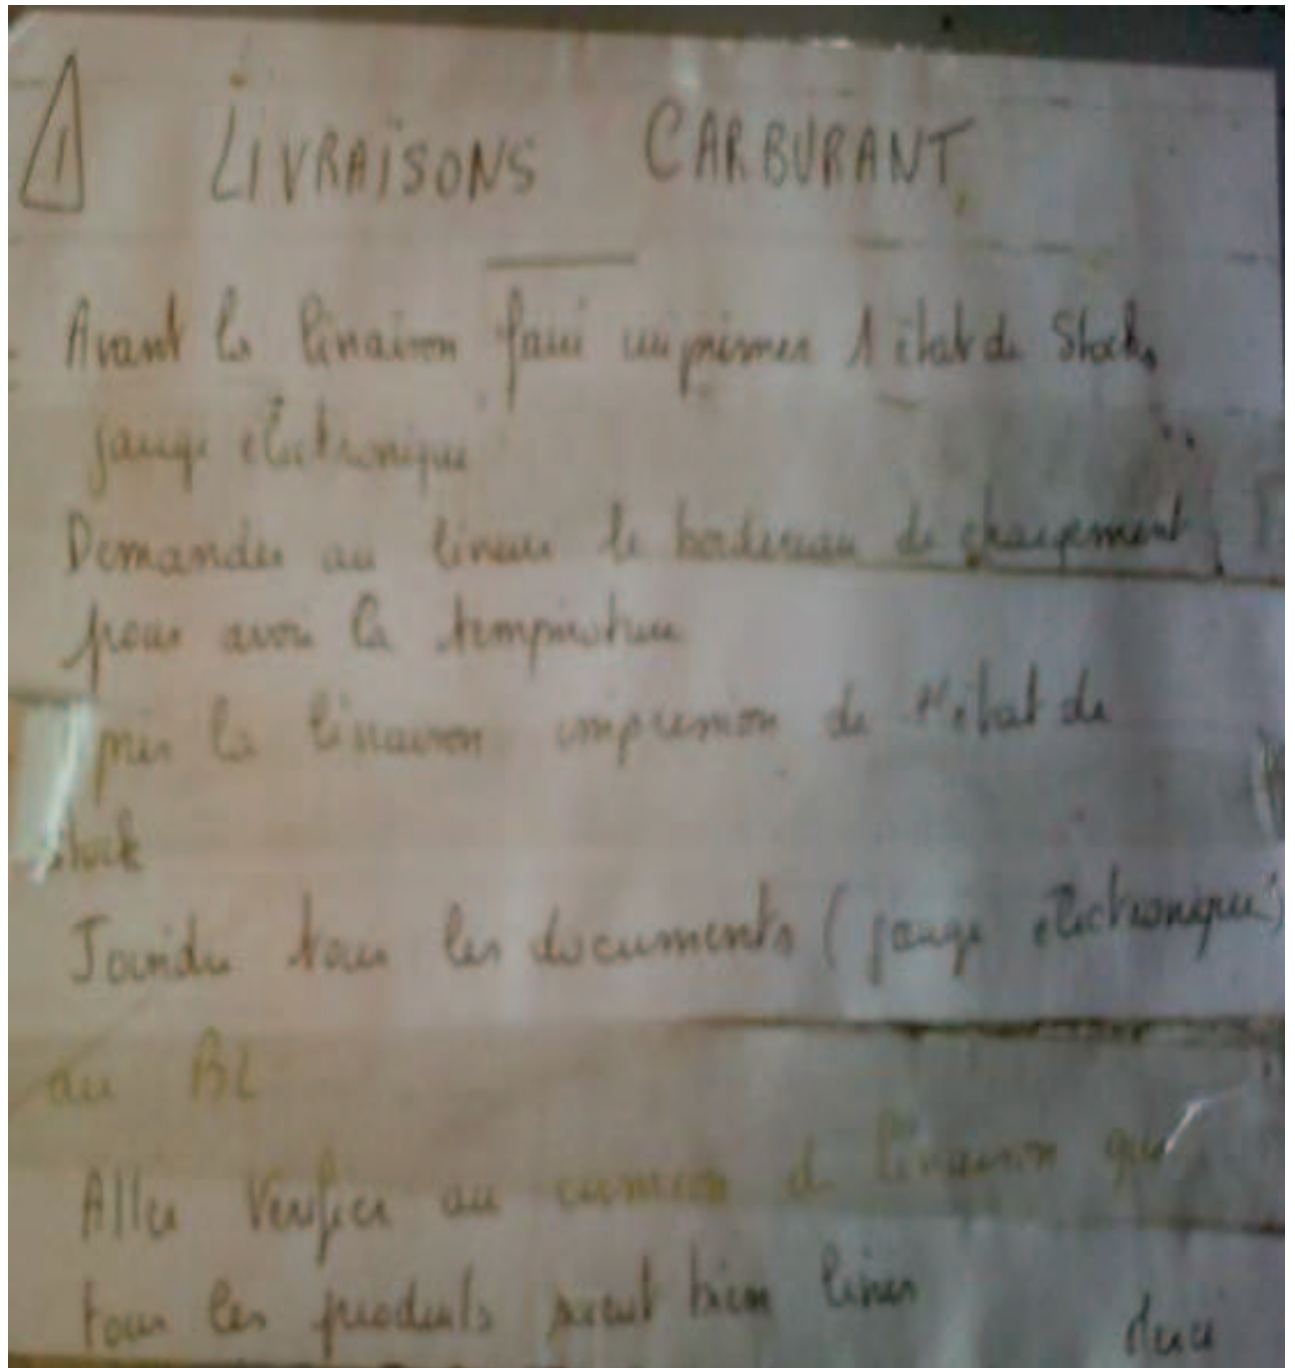 ! LIVRAISONS CARBURANT
- Avant la livraison faire imprimer 1 état de Stocks
jauge électronique
Demander au livreur le bordereau de chargement
pour avoir la température
près la livraison impression de l'état de
stock
Joindre tous les documents (jauge électronique)
au BL
Aller Vérifier au camion de livraison que
tous les produits soient bien livrés
Merci